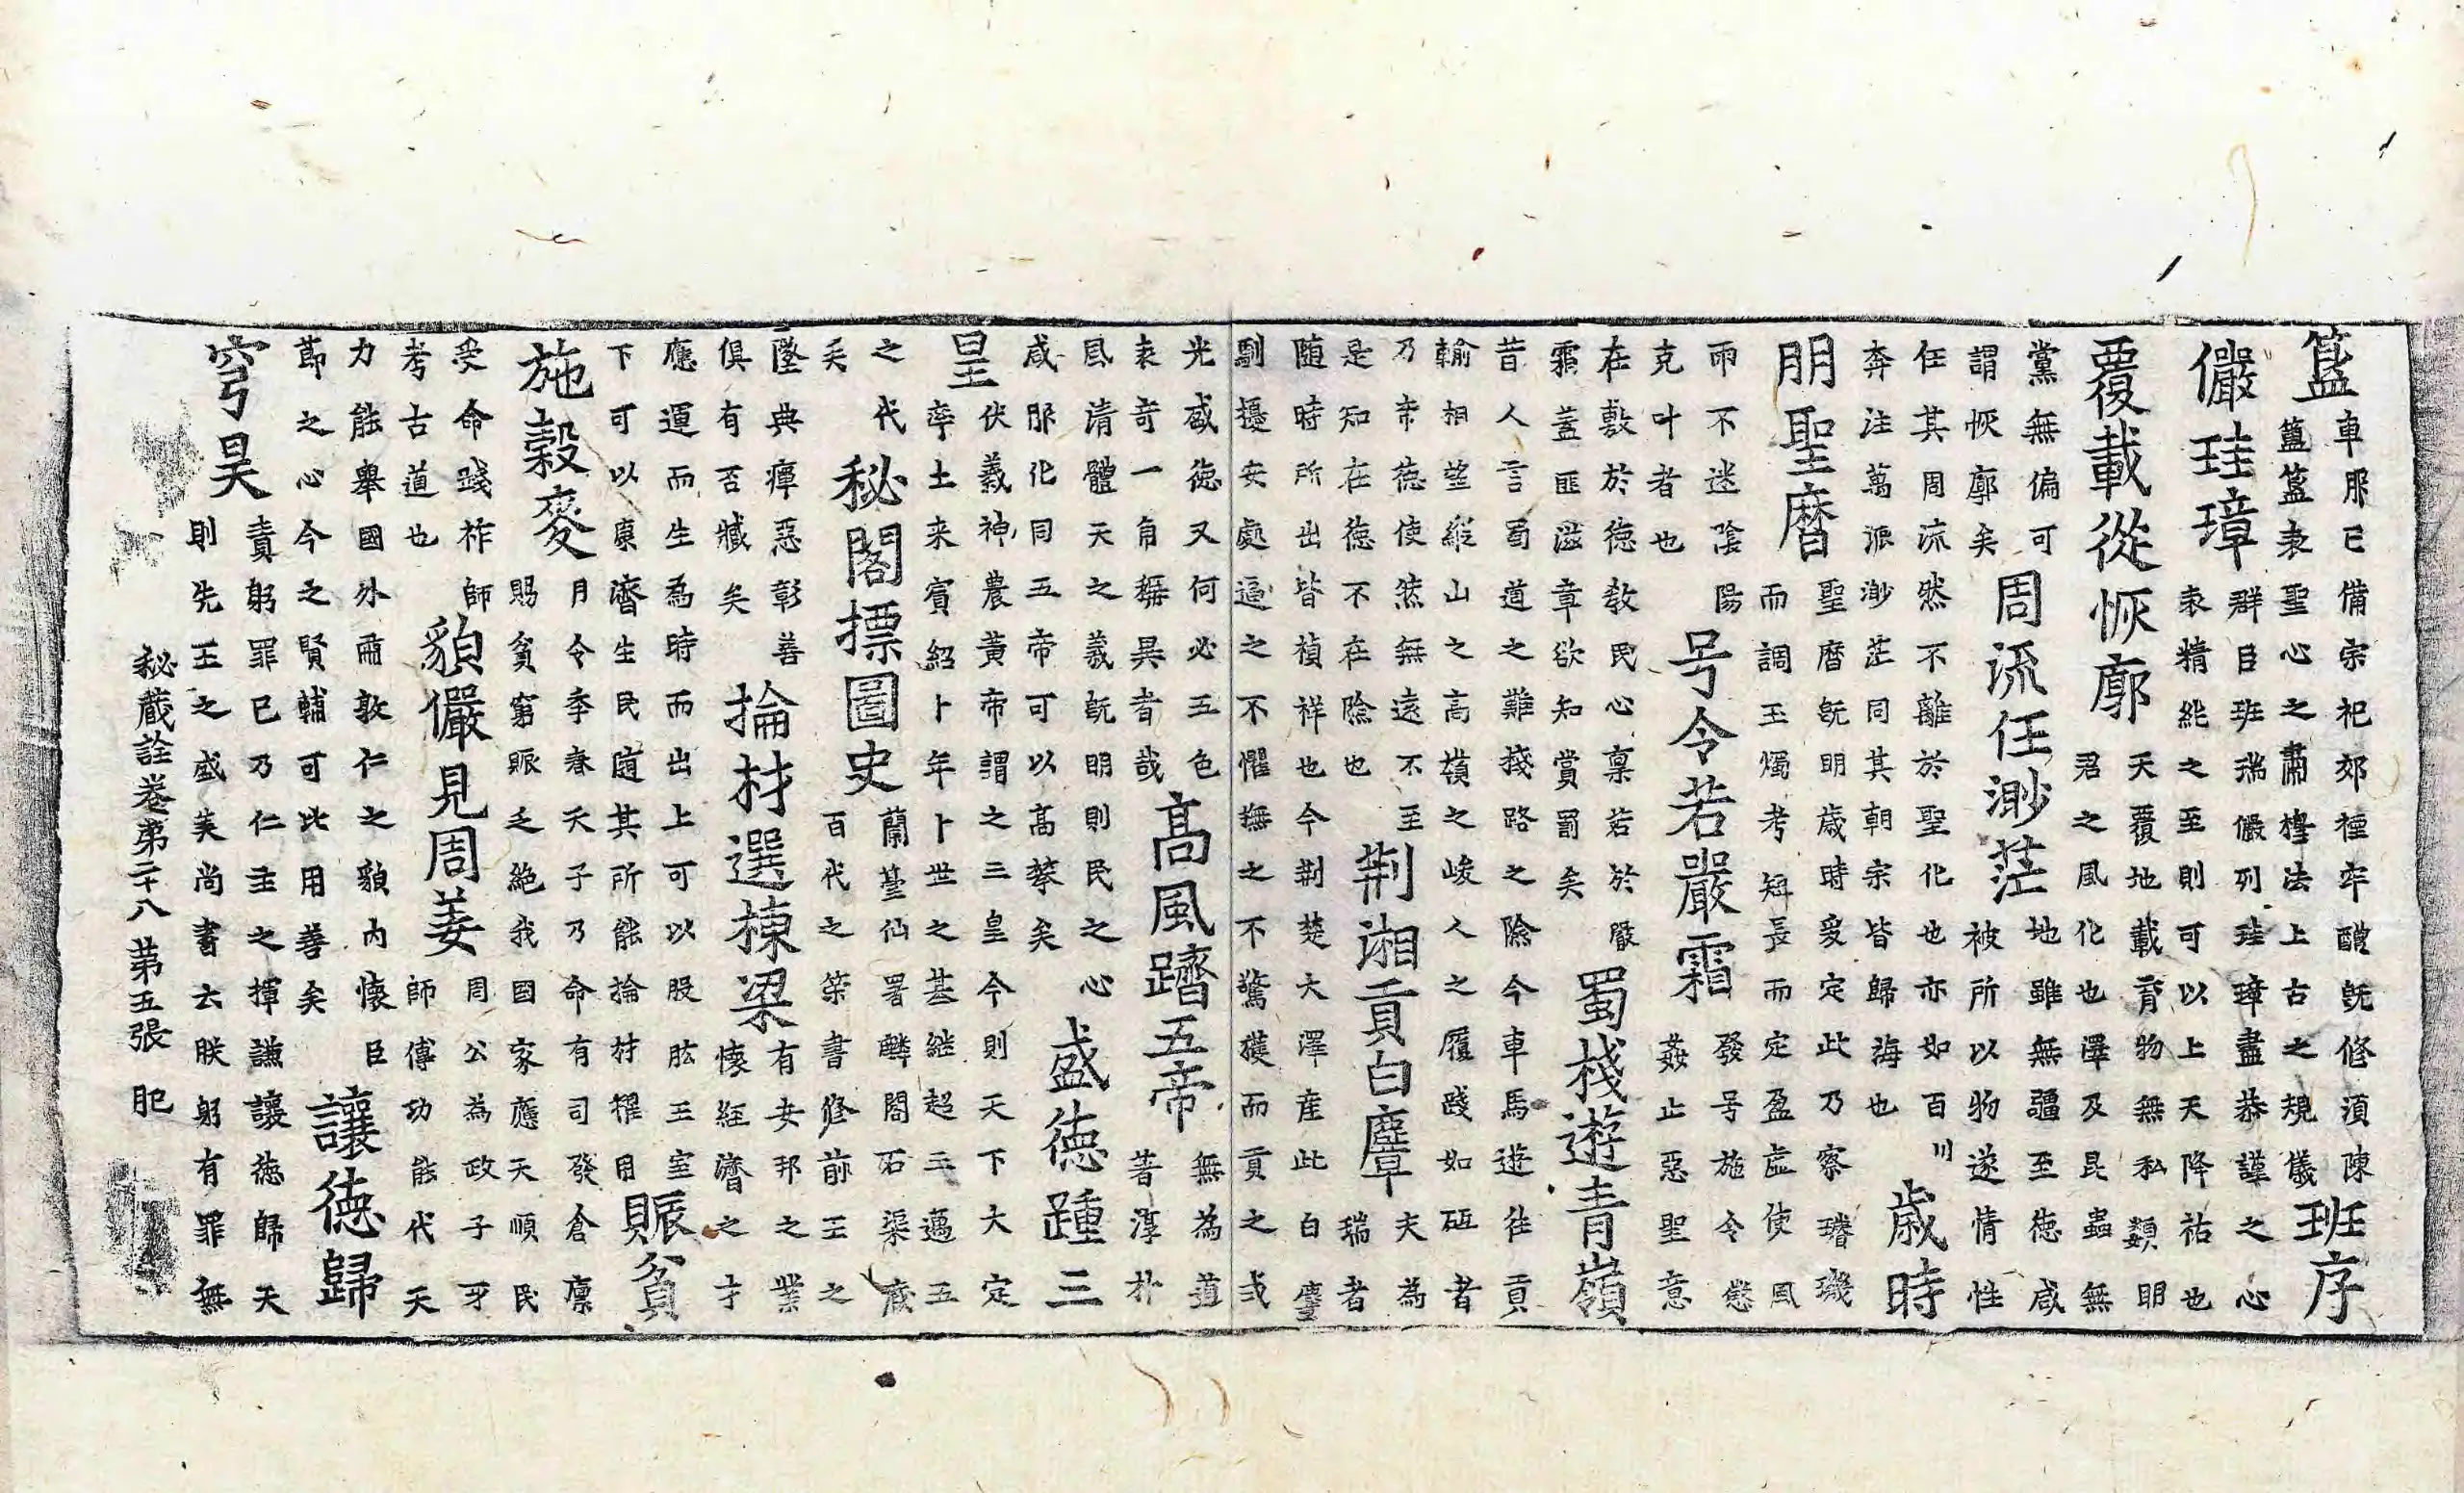 簋車服已備宗祀郊禋牢醴既修湏陳簠簋表聖心之肅禋法上古之規儀班序
儼珪璋群臣班瑞儼列珪璋盡恭謹之心表精純之至則可以上天降祐也
覆載從恢廓天覆地載育物無私類明君之風化也澤及昆蟲無
黨無偏可謂恢廓矣周流任渺茫地雖無疆至德咸被所以物遂情性
任其周流然不離於聖化也亦如百川奔注萬派渺茫同其朝宗皆歸海也歳時
朋聖曆聖曆既明歳時爰定此乃察璿璣而調玉燭考短長而定盈虛使風
雨不迷陰陽克叶者也号令若嚴霜發号施令懲姦止惡聖意
在敷於德敎民心稟若於嚴霜蓋匪滋章欲知賞罰矣蜀棧遊青嶺
昔人言蜀道之難棧路之險今車馬遊往貢輸相望縱山之高嶺之峻人之履踐如砥者
乃帝德使然無遠不至是知在德不在險也荆湘貢白麞夫為瑞者
随時所出皆禎祥也今荆楚大澤産此白麞馴擾安處逼之不懼撫之不驚獲而貢之或
光盛德又何必五色表奇一角稱異者哉髙風躋五帝無為道著淳朴
風清體天之義既明則民之心咸服化同五帝可以高攀矣盛德踵三
皇伏羲神農黄帝謂之三皇今則天下大定率土来賓紹卜年卜世之基継超三邁五
之代矣秘閣摽圖史蘭臺仙署麟閣石渠藏百代之築書修前王之
墜典癉惡彰善俱有否臧矣掄材選棟梁有安邦之業懐經濟之才
應運而生為時而出上可以股肱王室下可以康濟生民随其所能掄材擢用賑貧
施穀麥月令季春天子乃命有司發倉廩賜貧窮賑乏絶我国家應天順民
受命踐祚師考古道也貌儼見周姜周公為政子牙師傅功能代天
力能舉國外雨敦仁之貌内懐臣節之心今之賢輔可比用善矣讓德歸
穹昊責躬罪已乃仁主之揮謙讓德歸天則先王之盛美尚書云朕躬有罪無
秘蔵詮卷弟二十八 苐五張 肥